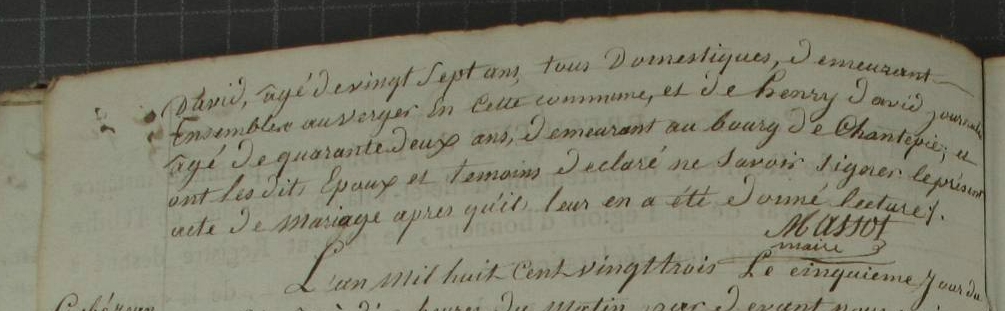 David, agé de vingt Sept ans, tous Domestiques, demeurant
Ensemble au verger En Cette commune, et de henry David journalier
agé de quarante deux ans, demeurant au bourg de Chantepie; et
ont les dits Epoux et temoins declaré ne Savoir Signer le présent
acte de Mariage apres qu'il leur en a été donné lecture.
Massot
maire
L'an Mil huit Cent vingt trois Le cinquieme Jour du
heures du Matin, par devant nous